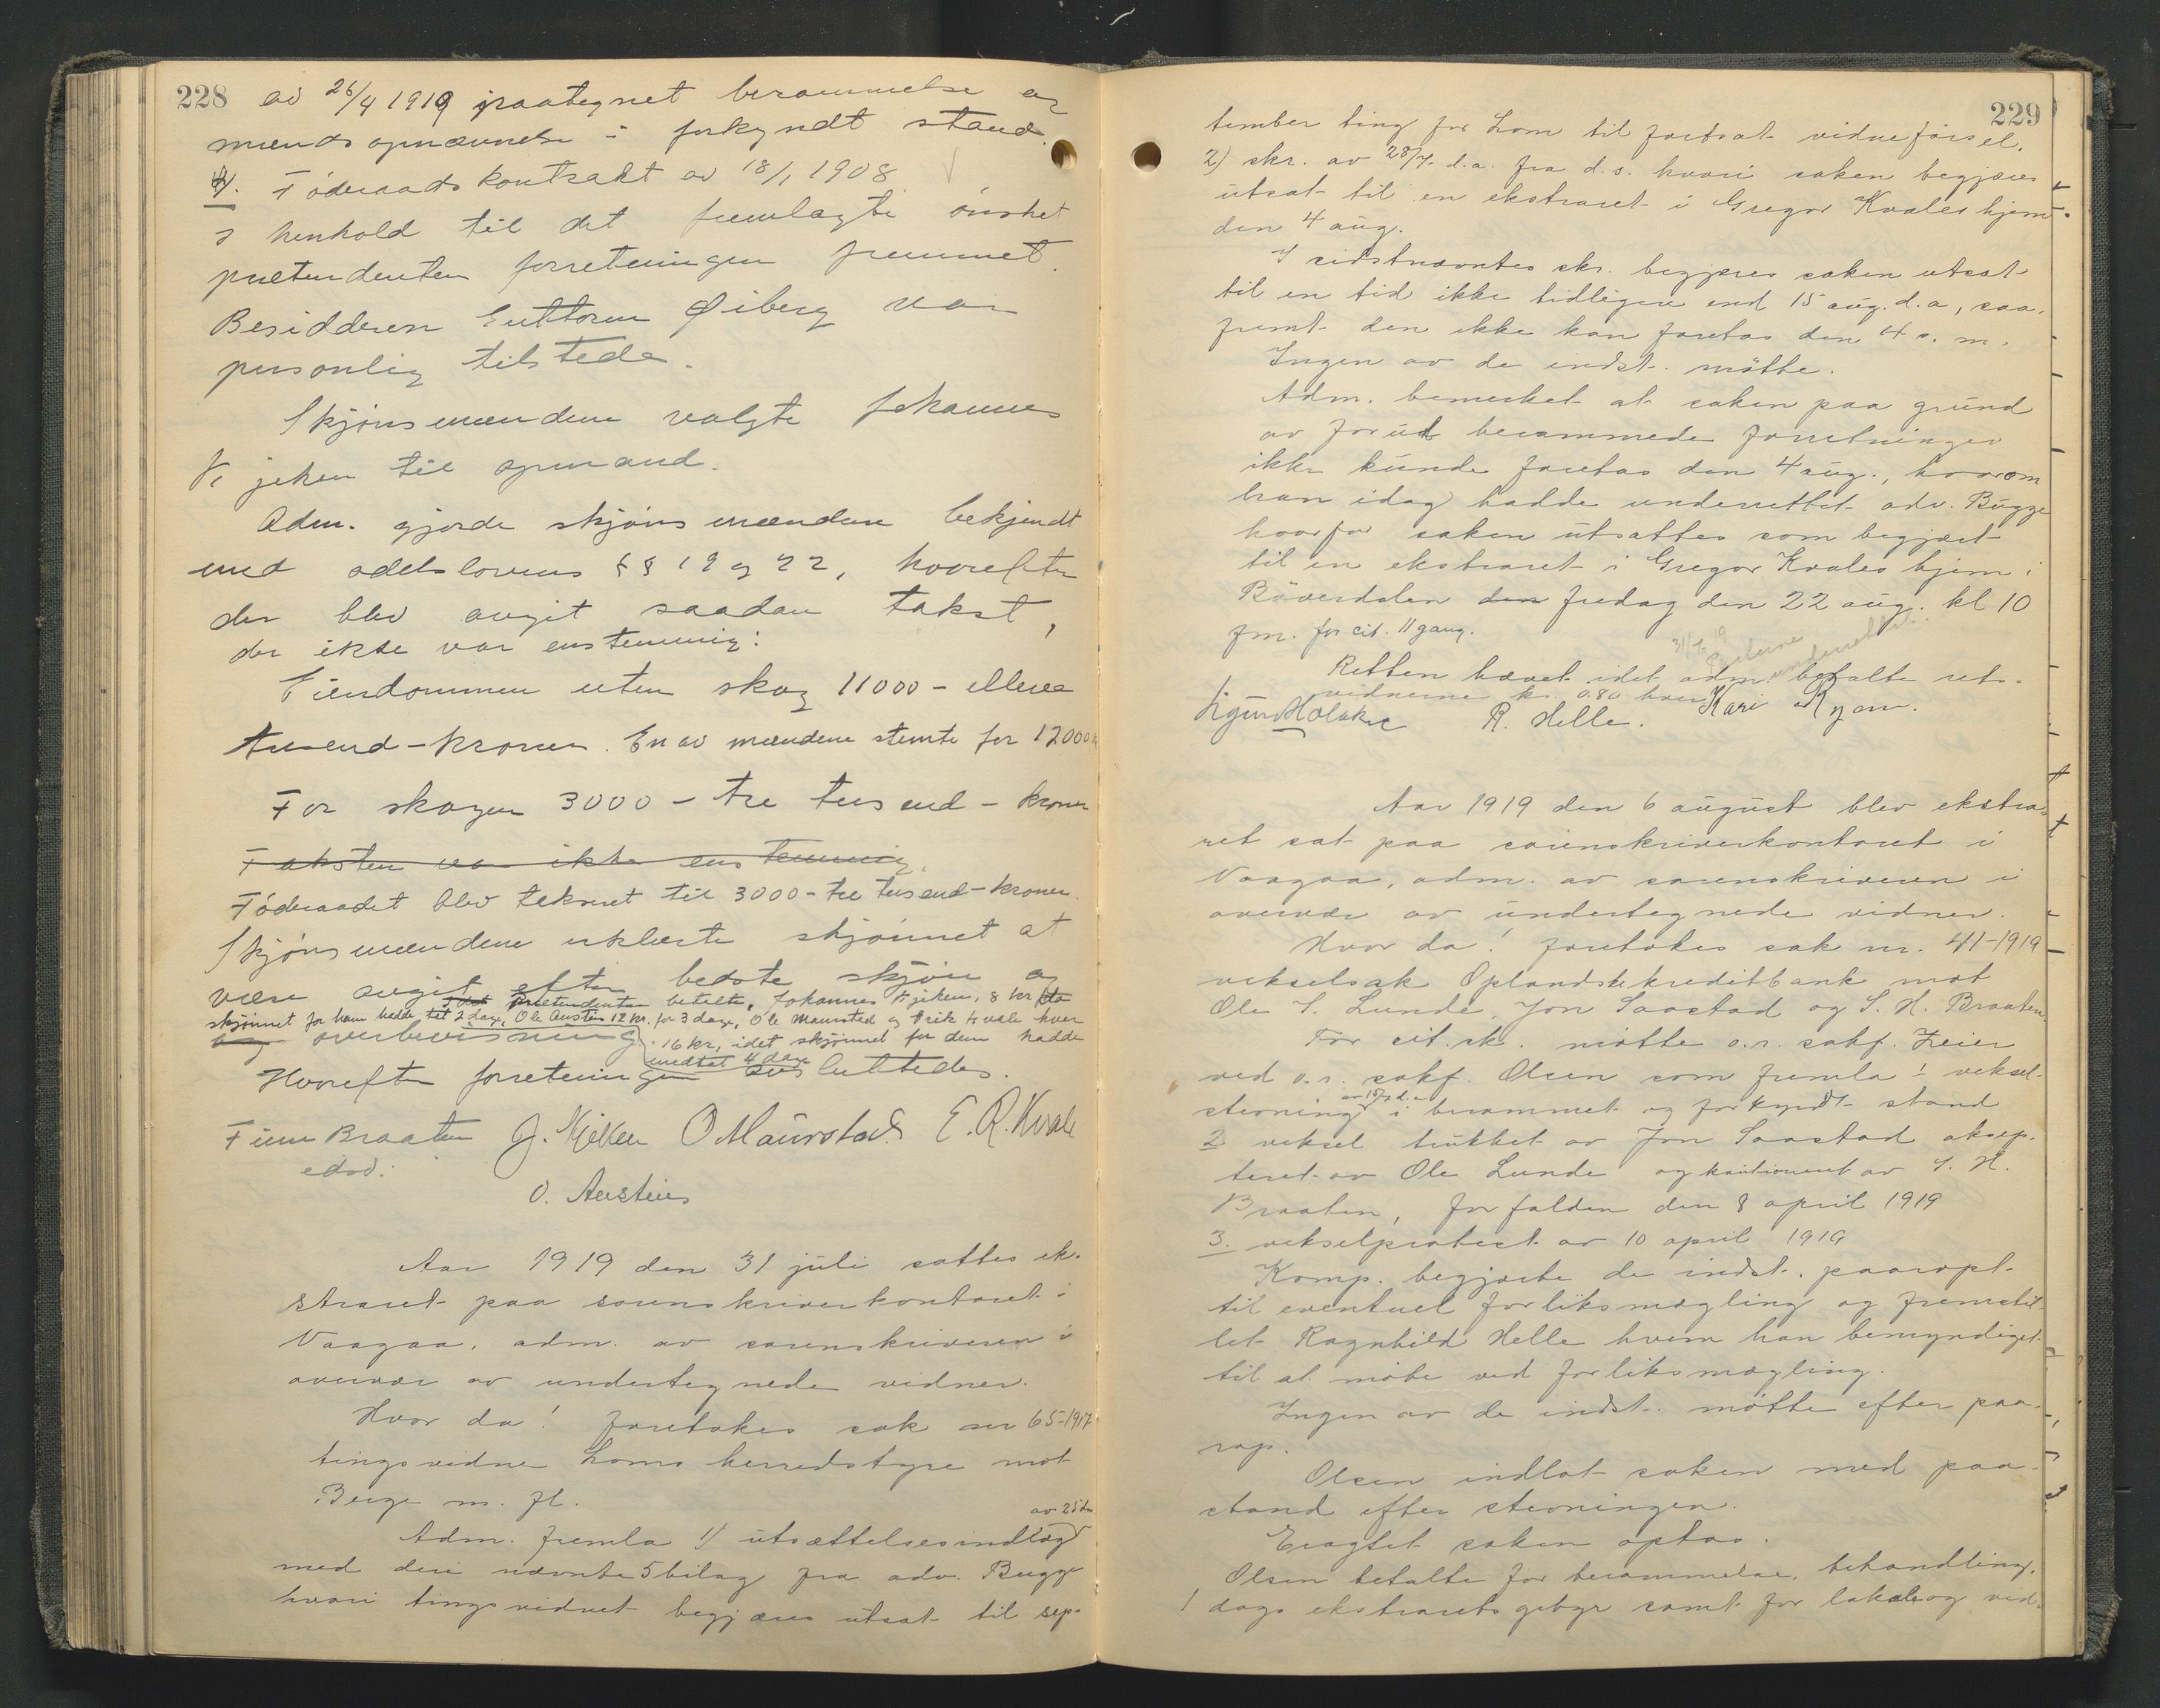 228
av 26/4 1919 paategnet berammelse og
mændsopnævnelse i forkyndt stand.
4. Föderaadskontrakt av 18/1 1908
I henhold til det fremlagte önsket
prætendenten forretningen fremmet.
Besidderen Guttorm Öiberg var
personlig tilstede.
Skjönsmændene valgte Johannes
Kjeken til opmand.
Adm. gjorde skjönsmændene bekjendt
med odelslovens §§ 19 og 22, hvorefter
der blev avgit saadan takst,
der ikke var enstemmig:
Eiendommen uten skog 11000 - elleve
tusend - kroner. En av mændene stemte for 12000 kr
For skogen 3000 - tre tusend - kroner
Taksten var ikke enstemmig.
Föderaadet blev taksert til 3000 - tre tusend - kroner.
Skjönsmændene erklærte skjönnet at
være avgit efter bedste skjön og
Idet Prætendenten betalte, Johannes Kjeken, 8 kr da
skjönnet for ham hadde tat 2 dage, Ole Austin 12 kr. for 3 dage, Ole Maurstad og Erik Kvale hver
og overbevisning
16 kr, idet skjönnet for dem hadde
medtat 4 dage
Hvorefter forretningen avsluttedes.
Finn Braaten J. Kjeken O Maurstad E. R. Kvale
edsv.
O. Austin
Aar 1919 den 31 juli sattes ek-
straret paa sorenskriverkontoret i
Vaagaa, adm. av sorenskriveren i
overvær av undertegnede vidner.
Hvor da! foretokes sak nr 65-1917
tingsvidne Loms herredstyre mot
Berge m. fl.
av 25 ds.
Adm. fremla 1) utsættelsesindlæg
med deri nævnte 5 bilag fra adv. Bugge
hvori tingsvidnet begjæres utsat til sep-
229
tember ting for Lom til fortsat vidneförsel.
2) skr. av 28/7 d.a. fra d.s. hvori saken begjæres
utsat til en ekstraret i Gregor Kvales hjem
den 4 aug.
I sidstnævntes skr. begjæres saken utsat
til en tid ikke tidligere end 15 aug. d.a, saa-
fremt den ikke kan foretas den 4 s. m.
Ingen av de indst. mötte.
Adm. bemerket at saken paa grund
av forut berammede forretninger
ikke kunde foretas den 4 aug., hvorom
han idag hadde underrettet adv. Bugge
hvorfor saken utsattes som begjært
til en ekstraret i Gregor Kvales hjem i
Böverdalen den fredag den 22 aug. kl 10
fm. for cit. 11 gang.
31/7 19
Parterne
underrettet
Retten hævet idet adm. betalte rets-
vidnerne kr. 0.80 hver
Sigurd Holaker R. Helle. Kari Ryen.
Aar 1919 den 6 august blev ekstra-
ret sat paa sorenskriverkontoret i
Vaagaa, adm. av sorenskriveren i
overvær av undertegnede vidner.
Hvor da! foretokes sak nr. 41-1919
vekselsak Oplandskreditbank mot
Ole S. Lunde, Jon Saastad og S. H. Braaten.
For cit. sk. mötte o.r. sakf. Zeier
ved o.r. sakf. Olsen som fremla 1 veksel-
av 18/7 d.a
stevning i berammet og forkyndt stand
2 veksel trukket av Jon Saastad aksep-
teret av Ole Lunde og kautionert av S. H.
Braaten, forfalden den 8 april 1919
3. vekselprotest av 10 april 1919
Komp. begjærte de indst. paaropt
til eventuel forliksmægling og fremstil-
let Ragnhild Helle hvem han bemyndiget
til at möte ved forliksmægling.
Ingen av de indst. mötte efter paa-
rop.
Olsen indlot saken med paa-
stand efter stevningen.
Eragtet saken optas.
Olsen betalte for berammelse, behandling,
1 dags ekstraretsgebyr samt for lokale og vid-